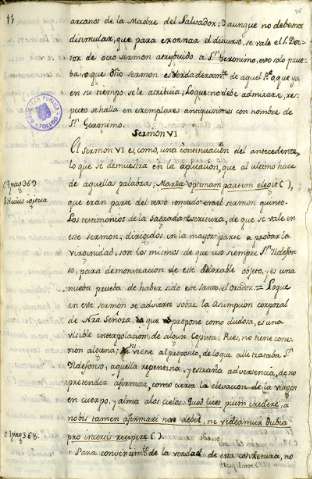 arcanos de la Madre del Salvador: aunque no debemos
disimular, que para exornar el discurso, se vale el S. Doc-
tor de otro sermon atribuido a Sn. Geronimo, eso solo prue-
ba, que dho sermon es verdaderamte. de aquel Sto. que ya
en su tiempo se le atribuia, lo que no debe admirar, res-
pecto se halla en exemplares antiquisimos con nombre de
Sn. Geronimo.
Sermon VI
El Sermon VI es como una continuacion del antecedente,
lo que se demuestra en la aplicacion, que al ultimo hace
de aquellas palabras: Maria optimam partem elegit ( ),
que eran parte del texto tomado en el sermon quinto.
Los testimonios de la Sagrada Escritura, de que se vale en
este sermon, dirigidos en la mayor parte a probar la
virginidad, son los mismos de que usa siempre Sn. Ildefon-
so, para demonstracion de este adorable objeto, y es una
nueva prueba de haber sido este Santo el Orador. Lo que
en este sermon se advierte sobre la Asumpcion corporal
de Ntra. Señora, que propone como dudosa, es una
visible interpolacion de algun Copista. Pues, ni tiene co-
nexion alguna, ni viene al proposito, de lo que alli trataba Sn.
Ildefonso, aquella repentina, y estraña advertencia, de no
pretender afirmar, como cierta la elevacion de la virgen
en cuerpo, y alma a los cielos: Quod licet pium sit credere, a
nobis tamen affirmari non debet, ne videamur dubia
pro certis recipere ( ).
Para convencimto. de la verdad de esta congetura, no